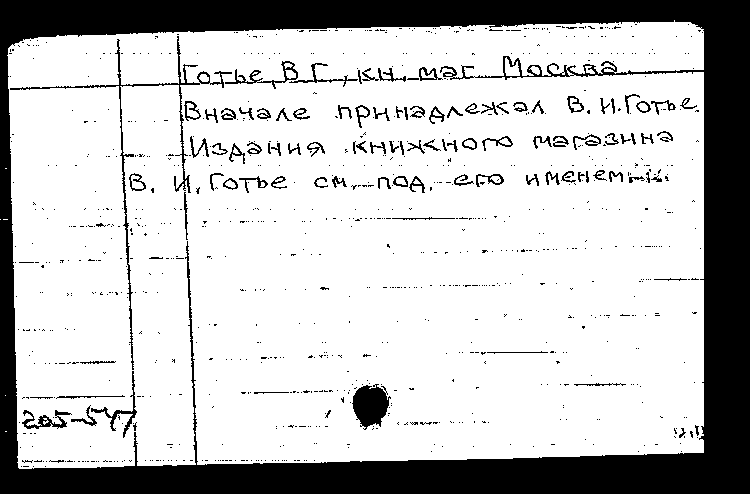 Готье, В Г, кн. маг Москва
Вначале принадлежал В. И. Готье.
Издания книжного магазина
В. И. Готье см. под. его именем.
205-547